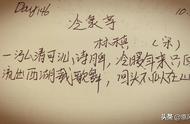 Day146 10.
冷泉亭
林稹 (宋)
一泓清可沁诗脾，冷暖年来只自
流出西湖载歌舞，回头不似在山